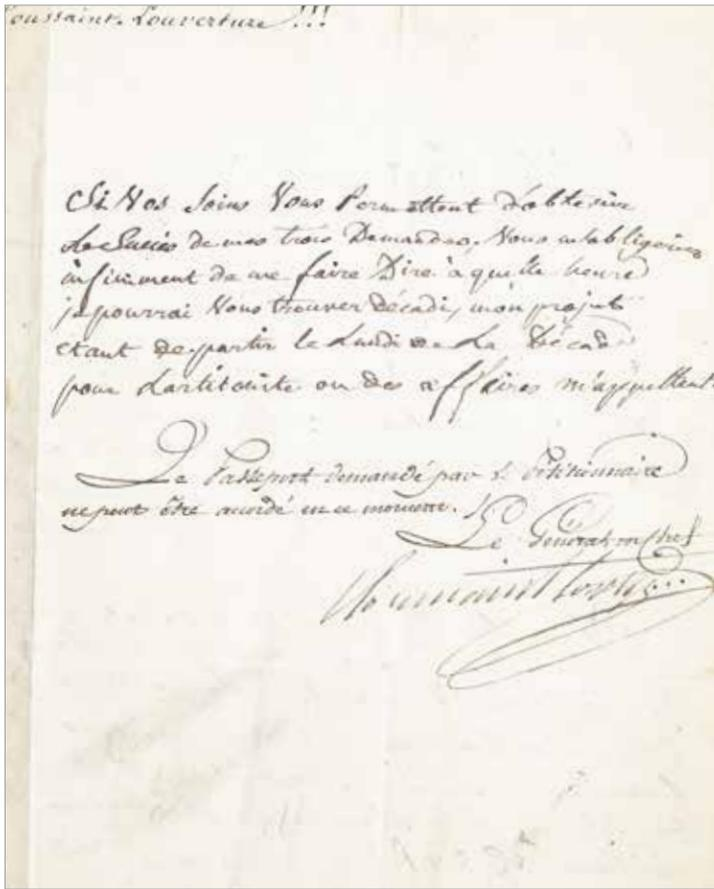 oussaint. Louverture !!!
Si Vos Soins Vous Permettent d'obtenir
Le Succès de mes trois Demandes, Vous m'obligeriez
infiniment de me faire Dire à quelle heure
je pourrai Vous trouver Decadi, mon projet
etant de partir le Lundi de La Décade
pour Lartibonite ou des affaires m'appellent.
Le Passeport demandé par le Pétitionnaire
ne peut être accordé en ce moment.
Le Général en Chef
Toussaint Louverture